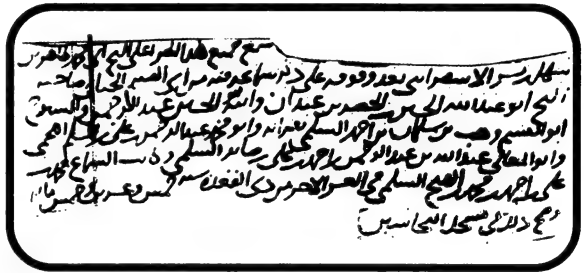 سمع جميع هذا الجزء على الشيخ ابي محمد طاهر بن
سهل بن بشر الاسفرايني بعد وقوفه على ذكر سماعه فيه من ابي القسم الحنائي صاحبه
الشيخ ابو عبد الله الحسين بن الخضر بن عبدان وابنه ابو الحسين عبد الرحمن والشيوخ
ابو القسم وهب بن سلمان بن احمد السلمي بقراءته وابو محمد عبد الرحمن بن علي بن المسلم اللخمي
وابو المعالي عبد الله بن عبد الرحمن بن احمد بن علي بن صابر السلمي وكاتب السماع محمد بن
علي بن احمد بن محمد بن الفتح السلمي في العشر الاخر من ذي القعدة سنة خمس وعشرين وخمس مائة
وصح ذلك في مسجد